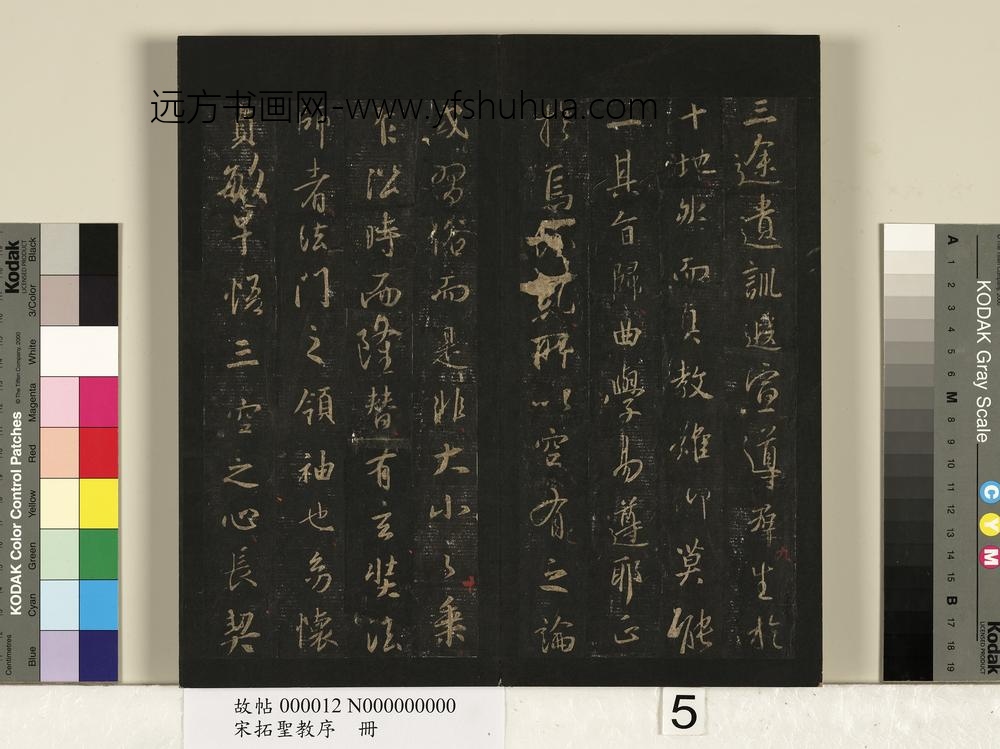 远方书画网-www.yfshuhua.com
三途遺訓遐宣導群生於
十地然而真教難仰莫能
一其旨歸曲學易遵耶正
於焉紛糺所以空有之論
或習俗而是非大小之乘
乍沿時而隆替有玄奘法
師者法門之領袖也幼懷
貞敏早悟三空之心長契
九
十
故帖 000012 N000000000
宋拓聖教序 冊
5
Kodak
LICENSED PRODUCT
KODAK Color Control Patches
© The Tiffen Company, 2000
Centimetres
Blue
Cyan
Green
Yellow
Red
Magenta
White
3/Color
Black
KODAK Gray Scale
C
Y
M
Kodak
LICENSED PRODUCT
A 1 2 3 4 5 6 M 8 9 10 11 12 13 14 15 B 17 18 19